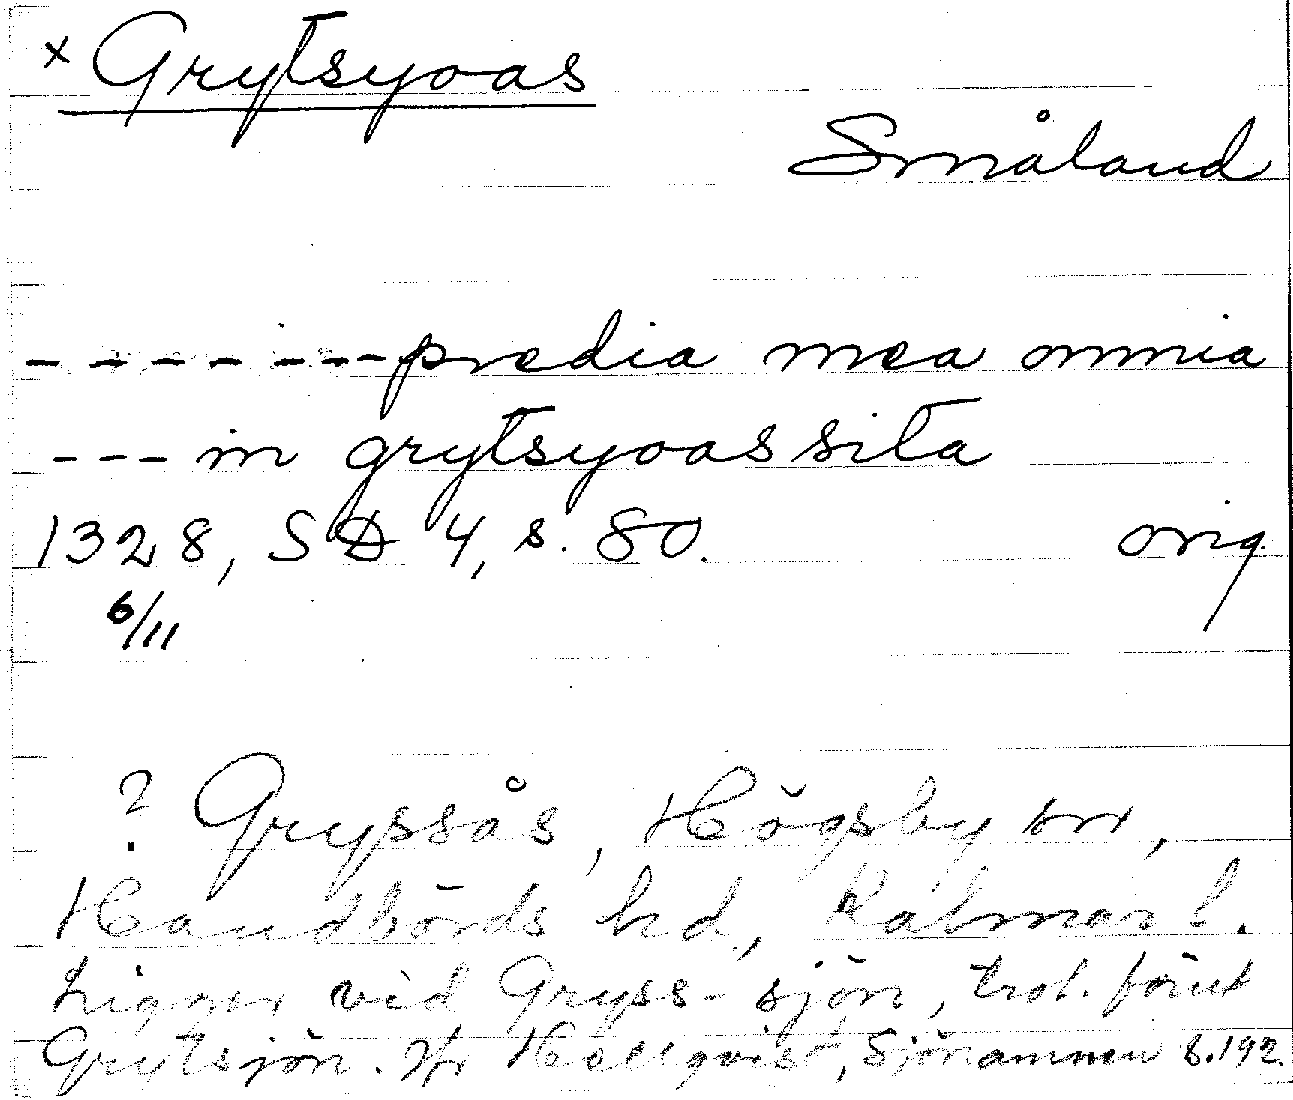 x Grytsyoas
Småland
- - - - - - - predia mea omnia
- - - in grytsyoas sita
1328, SD 4, s. 80. orig.
6/11
? Gryssås, Högsby sn,
Handbörds hd, Kalmar l.
Ligger vid Gryss-sjön, trol. förut
Grytsjön. Jfr Hellqvist, Sjönamnen s. 192